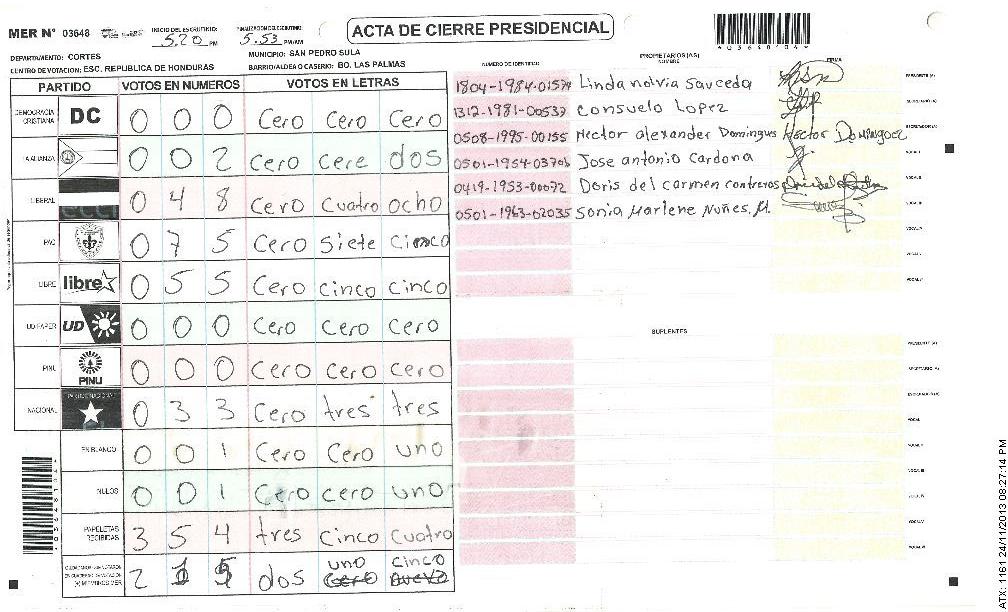 MER N° 03648 INICIO DEL ESCRUTINIO: 5:20 PM FINALIZACION DEL ESCRUTINIO: 5:53 PM/AM ACTA DE CIERRE PRESIDENCIAL
DEPARTAMENTO: CORTES MUNICIPIO: SAN PEDRO SULA
CENTRO DE VOTACION: ESC. REPUBLICA DE HONDURAS BARRIO/ALDEA O CASERIO: BO. LAS PALMAS
PARTIDO VOTOS EN NUMEROS VOTOS EN LETRAS
DEMOCRACIA CRISTIANA DC 0 0 0 Cero Cero Cero
LA ALIANZA 0 0 2 Cero Cere dos
LIBERAL 0 4 8 Cero Cuatro ocho
PAC 0 7 5 Cero Siete Cinco
LIBRE libre 0 5 5 Cero Cinco Cinco
UD FAPER UD 0 0 0 Cero Cero Cero
PINU PINU 0 0 0 Cero Cero Cero
NACIONAL PARTIDO NACIONAL 0 3 3 Cero tres tres
EN BLANCO 0 0 1 Cero Cero uno
NULOS 0 0 1 Cero cero uno
PAPELETAS RECIBIDAS 3 5 4 tres Cinco Cuatro
2 1 5 dos uno Cinco
NUMERO DE IDENTIDAD PROPIETARIOS (AS) NOMBRE FIRMA
1804-1984-01574 Linda nolvia Sauceda PRESIDENTE (A)
1312-1981-00537 Consuelo Lopez SECRETARIO (A)
0508-1995-00155 Hector alexander Domingus Hector Dominguez ESCRUTADOR (A)
0501-1954-03706 Jose antonio Cardona VOCAL I
0419-1953-00072 Doris del carmen contreras VOCAL II
0501-1963-02035 Sonia Marlene Nuñes. M. VOCAL III
VOCAL IV
VOCAL V
VOCAL VI
SUPLENTES
PRESIDENTE (A)
SECRETARIO (A)
ESCRUTADOR (A)
VOCAL I
VOCAL II
VOCAL III
VOCAL IV
VOCAL V
VOCAL VI
ATX: 1161 24/11/2013 08:27:14 PM